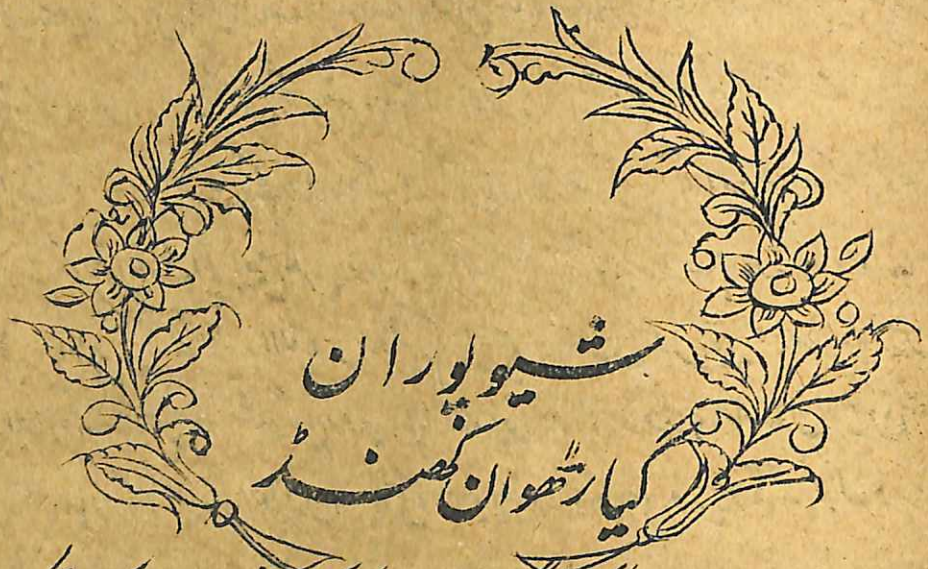 شیو پوران
گیارھواں کھنڈ